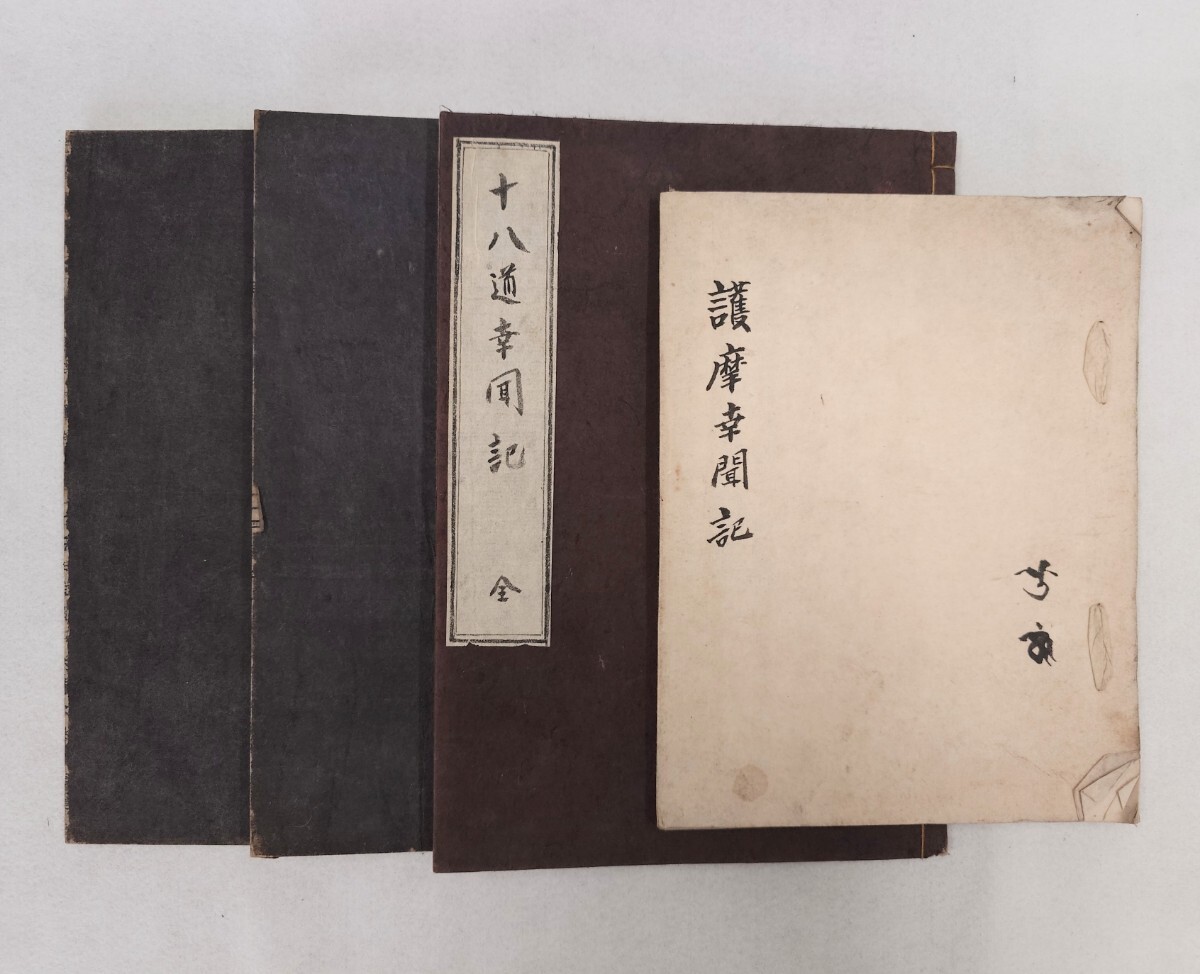 十八道幸聞記 全
護摩幸聞記